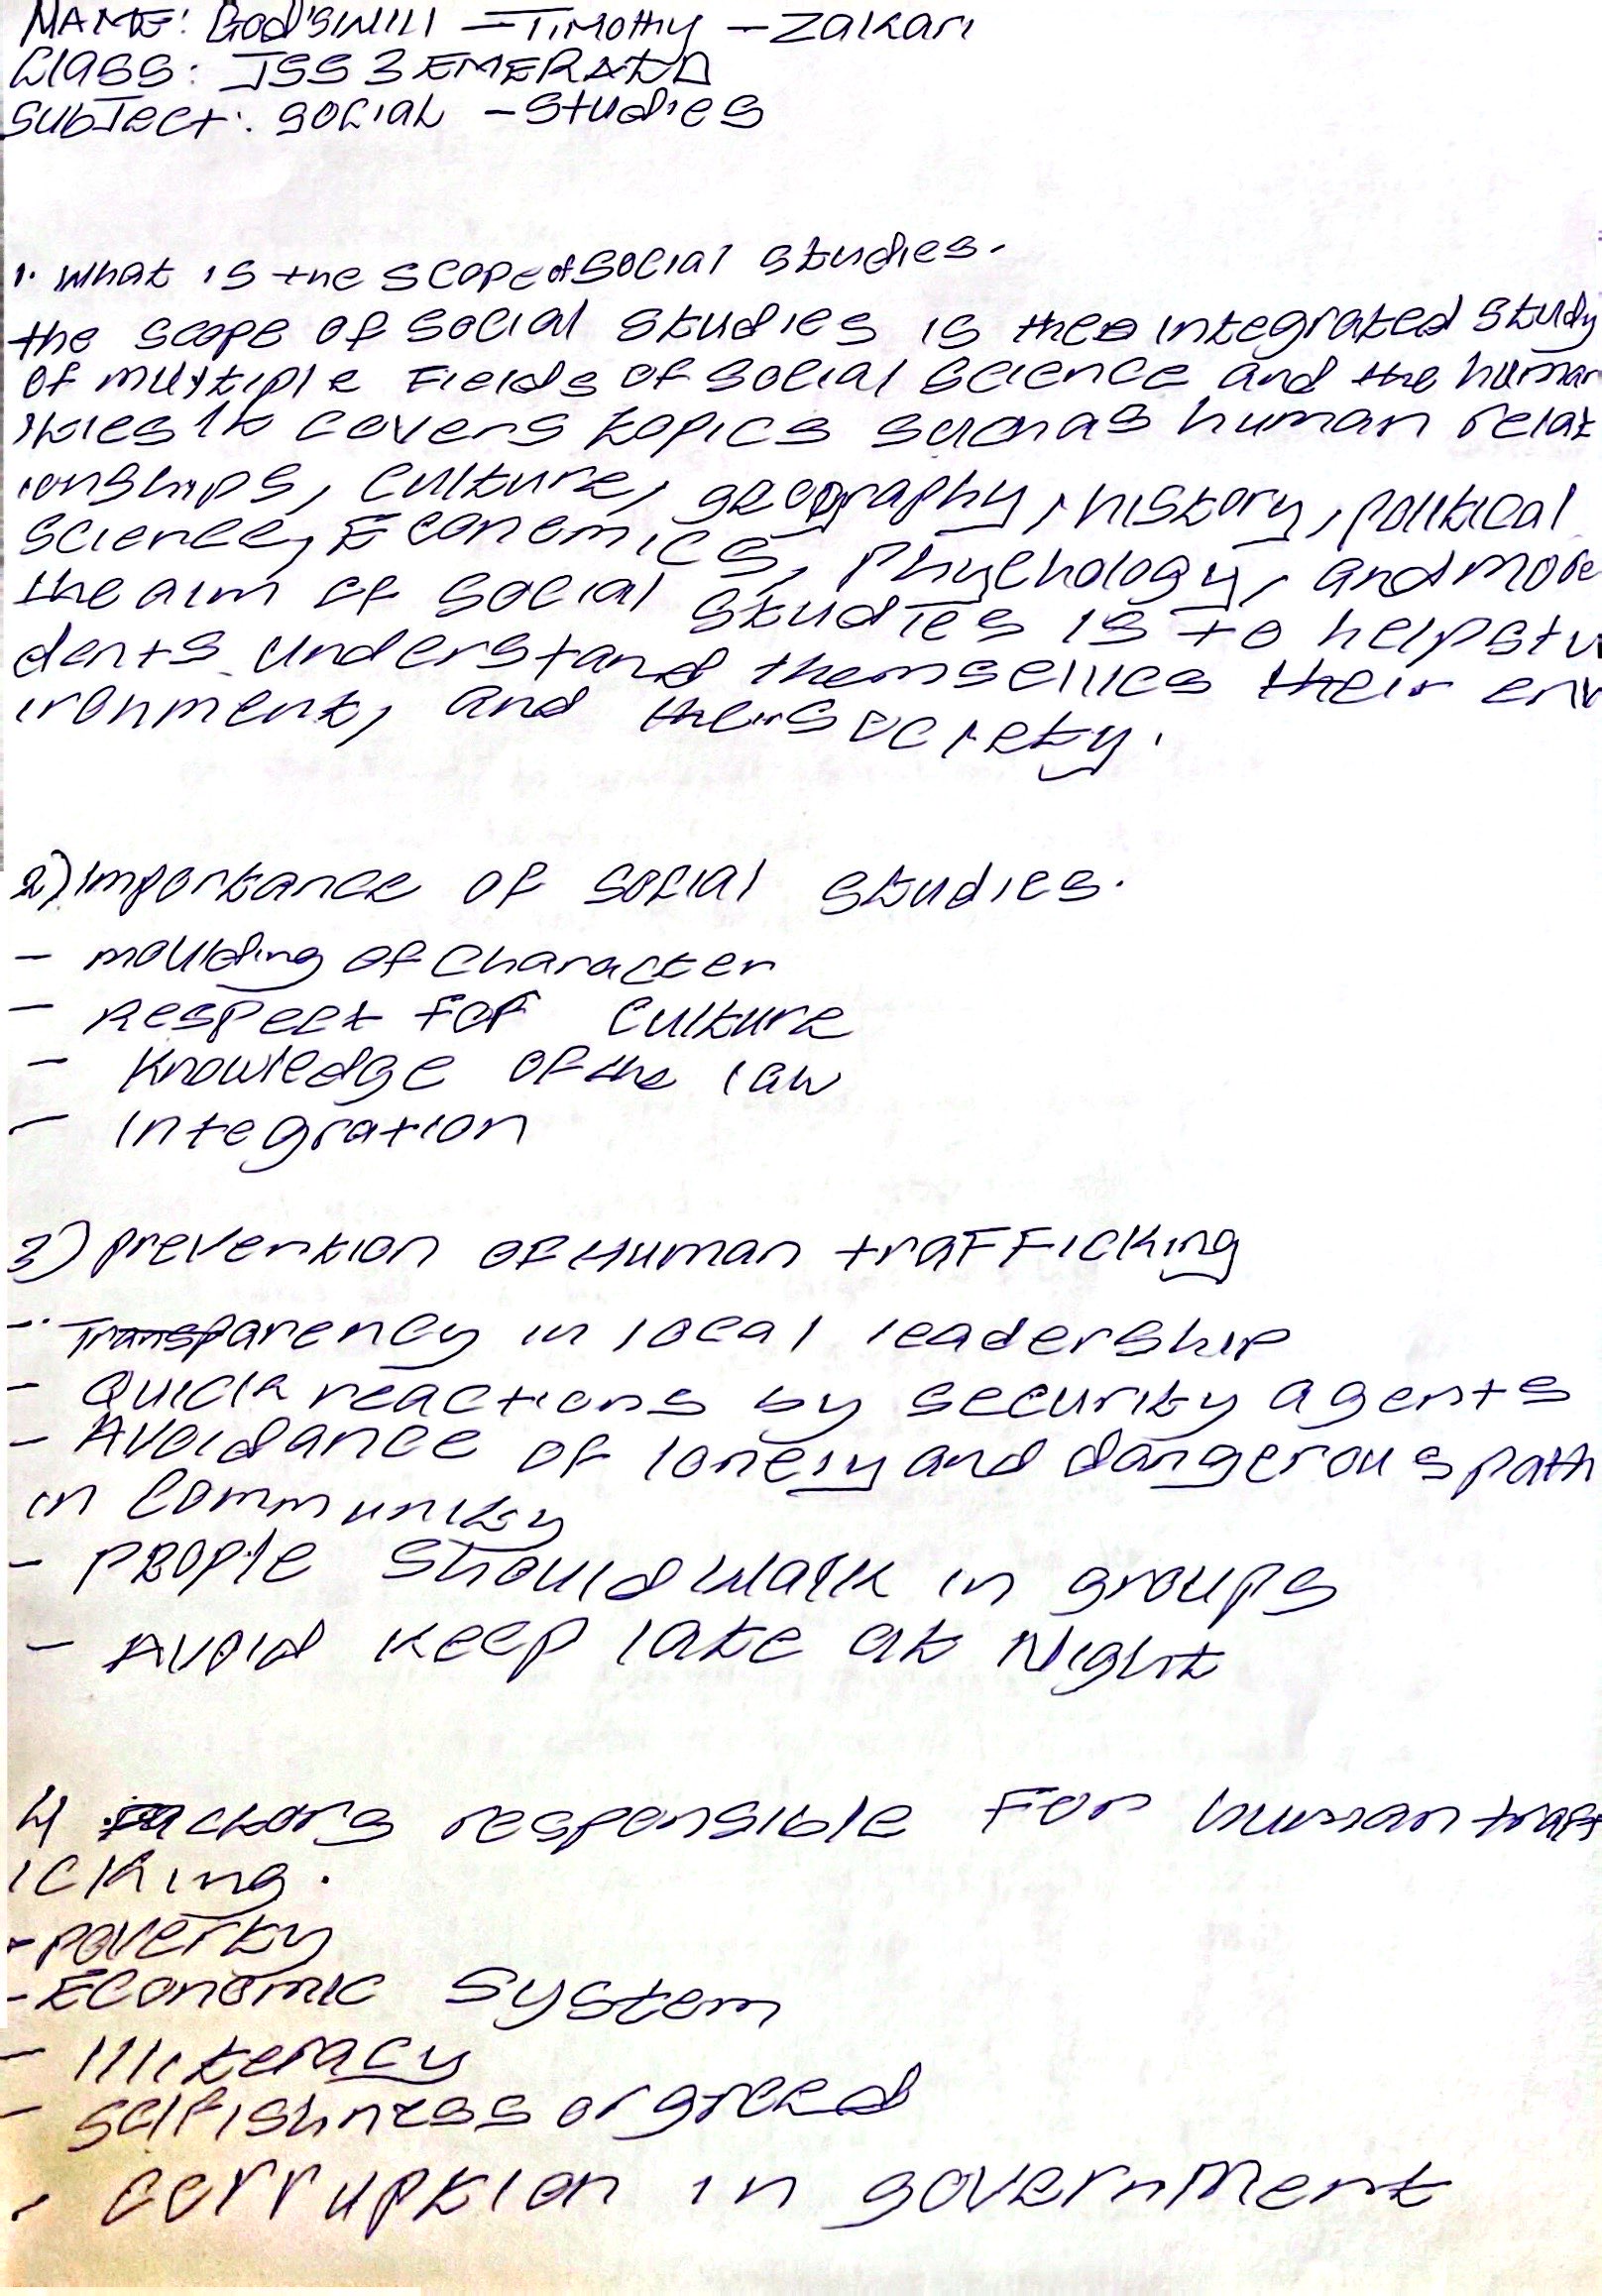 NAME: God'swill - Timothy - Zakari
Class: JSS 3 EMERALD
Subject: social - studies
1. What is the scope of social studies.
the scope of social studies is the integrated study
of multiple Fields of social science and the human
ities It covers topics such as human relat
ionships, culture, geography, history, political
science, Economics, Phychology, and more
the aim of social studies is to help stu
dents understand themselves their env
ironment, and their society.
2) importance of social studies.
- moulding of character
- Respect for culture
- Knowledge of the law
- Integration
3) prevention of Human trafficking
- Transparency in local leadership
- Quick reactions by security agents
- Avoidance of lonely and dangerous path
in community
- People should walk in groups
- Avoid keep late at Night
4) Factors responsible For human traff
icking.
- poverty
- Economic System
- Illiteracy
- selfishness or greed
- corruption in government